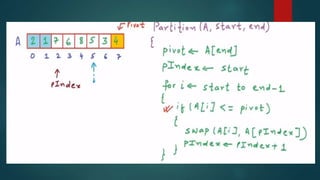 Pivot
Partition (A, start, end)
{
A 2 1 7 6 8 5 3 4
0 1 2 3 4 5 6 7
pIndex
i
pivot ← A[end]
pIndex ← start
for i ← start to end-1
{
if (A[i] <= pivot)
{
swap (A[i], A[pIndex])
pIndex ← pIndex + 1
} } }